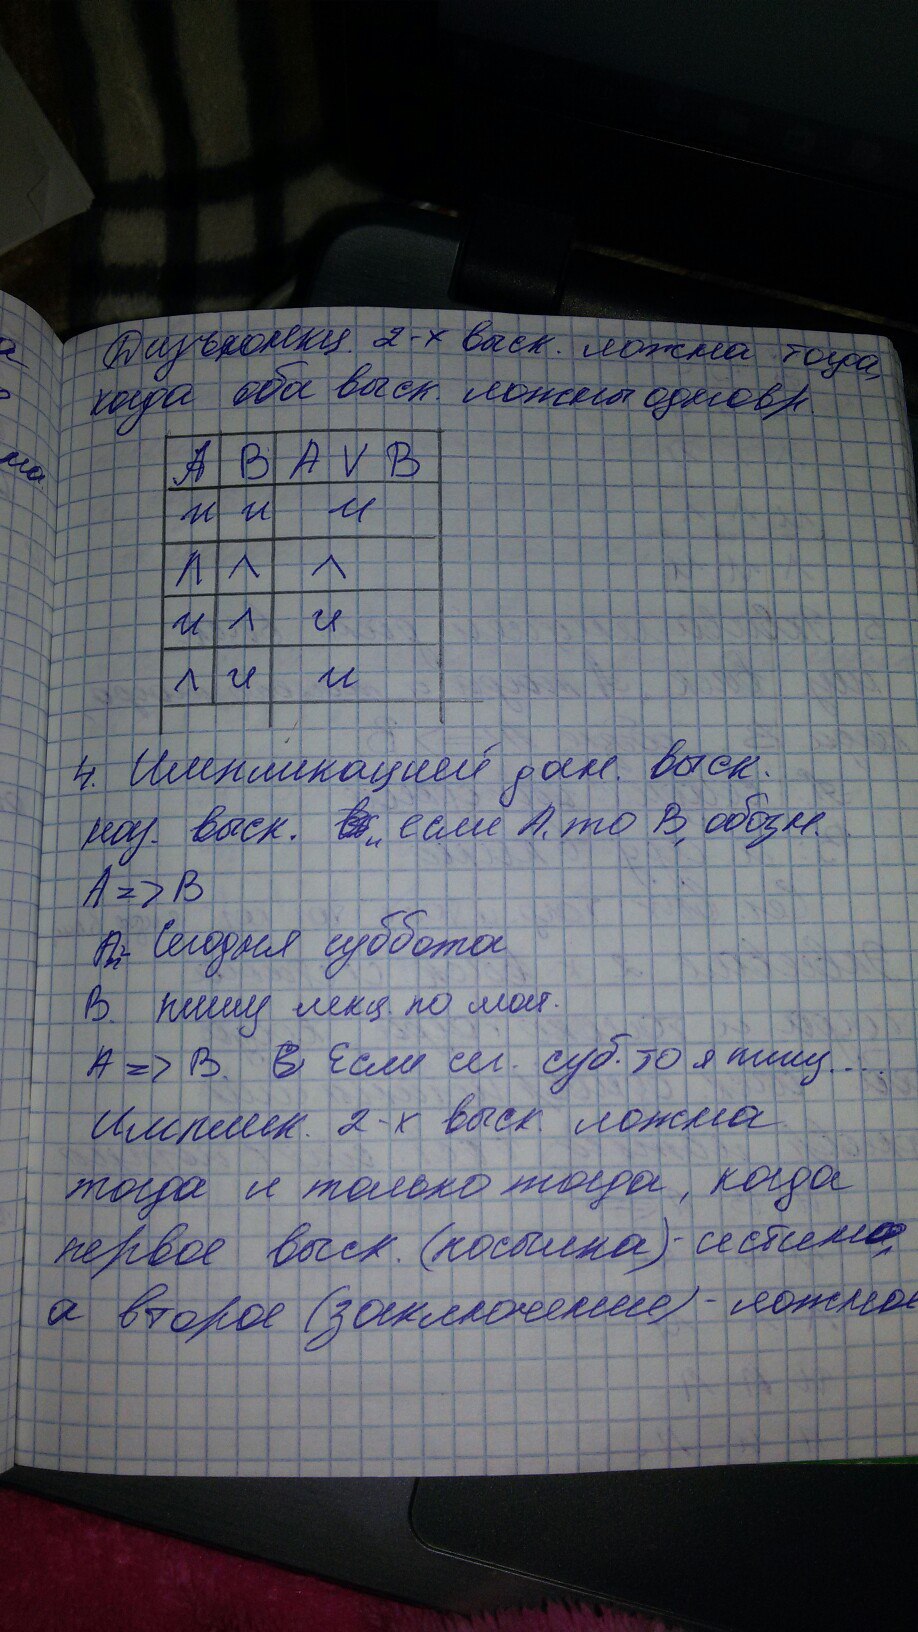 Дизъюнкц. 2-х выск. ложна тогда,
когда оба выск. ложны одновр.
A B A V B
и и и
л л л
и л и
л и и
4. Импликацией дан. выск.
наз. выск. „если А, то В, обозн.
A => B
A: Сегодня суббота
B. пишу лекц. по мат.
A => B. Если сег. суб. то я пишу....
Имплик. 2-х выск. ложна
тогда и только тогда, когда
первое выск. (посылка) - истинно,
а второе (заключение) - ложное
на